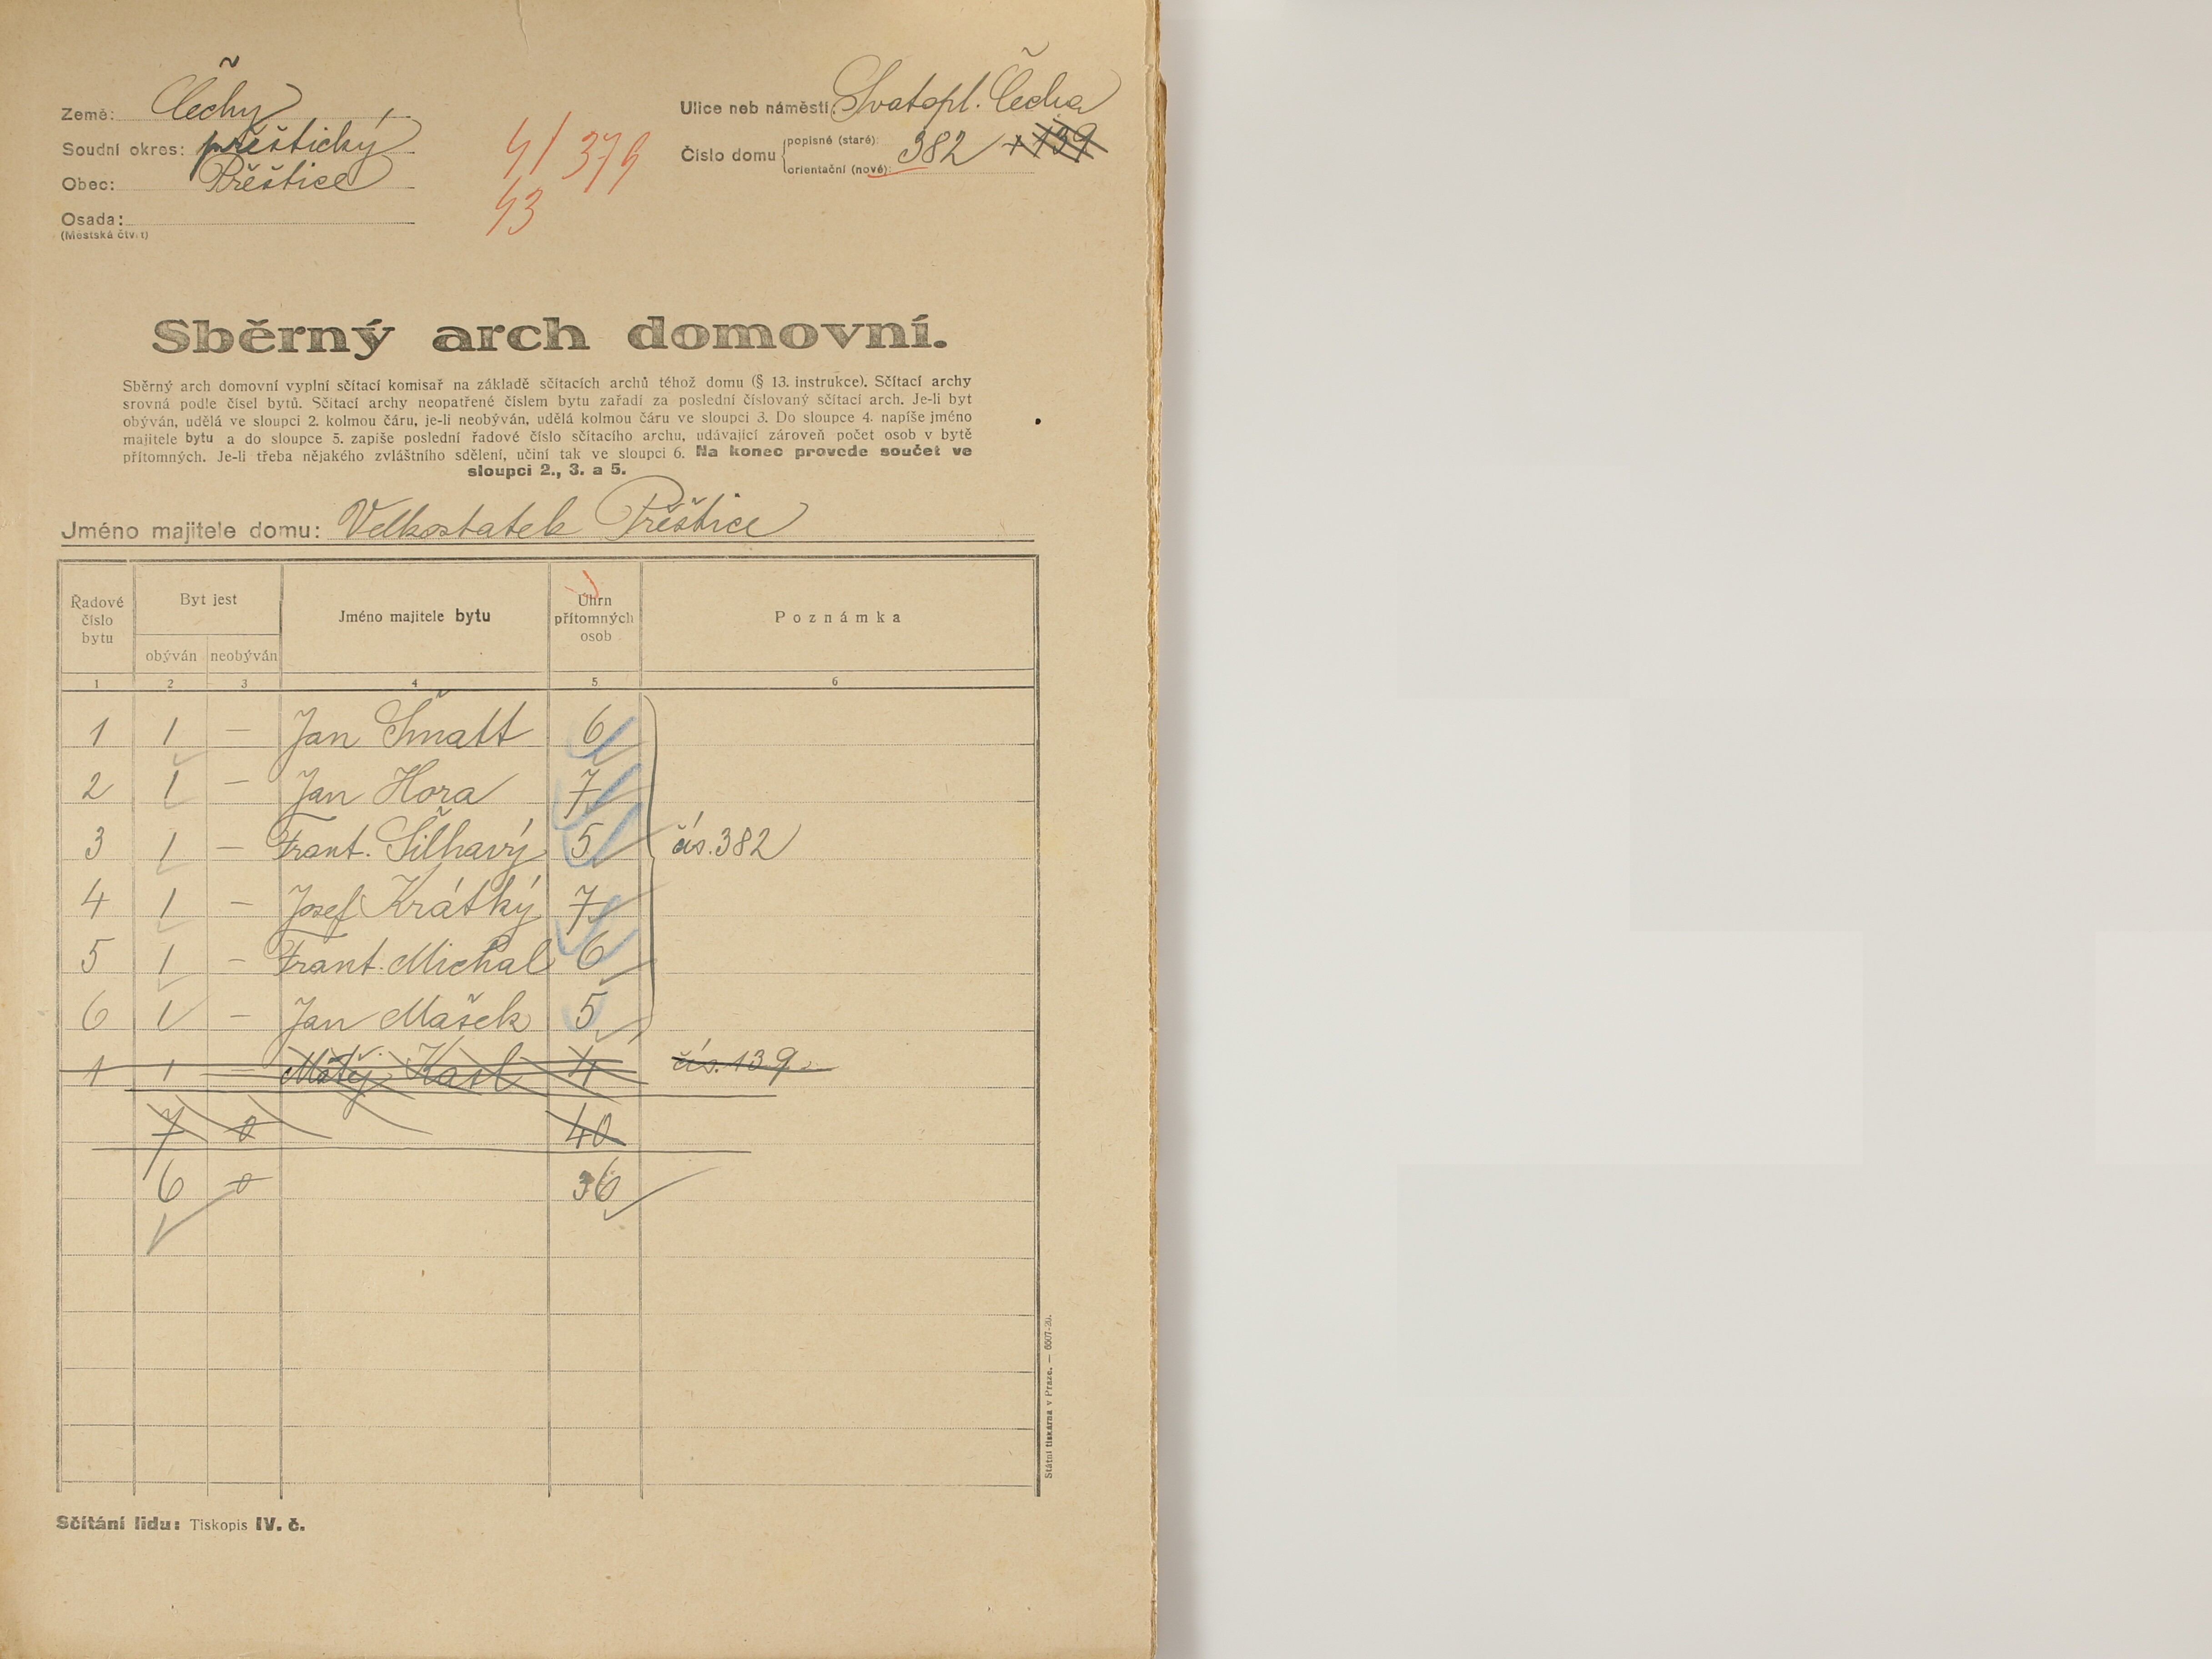 Země: Čechy
Soudní okres: přeštický
Obec: Přeštice
Osada:
(Městská čtvrť)
Ulice neb náměstí: Svatopl. Čecha
Číslo domu
popisné (staré):
orientační (nové):
382 + 139
Sběrný arch domovní.
Sběrný arch domovní vyplní sčítací komisař na základě sčítacích archů téhož domu (§ 13. instrukce). Sčítací archy
srovná podle čísel bytů. Sčítací archy neopatřené číslem bytu zařadí za poslední číslovaný sčítací arch. Je-li byt
obýván, udělá ve sloupci 2. kolmou čáru, je-li neobýván, udělá kolmou čáru ve sloupci 3. Do sloupce 4. napíše jméno
majitele bytu a do sloupce 5. zapíše poslední řadové číslo sčítacího archu, udávající zároveň počet osob v bytě
přítomných. Je-li třeba nějakého zvláštního sdělení, učiní tak ve sloupci 6. Na konec provede součet ve
sloupci 2., 3. a 5.
Jméno majitele domu: Velkostatek Přeštice
Řadové číslo bytu
Byt jest
obýván neobýván
Jméno majitele bytu
Úhrn přítomných osob
Poznámka
1 2 3 4 5 6
1 1 — Jan 6
2 1 — Jan Hora 7
3 1 — Frant. Šilhavý 5 čís. 382
4 1 — Josef Krátký 7
5 1 — Frant. Michal 6
6 1 — Jan Mašek 5
1 1 — Matěj 4 čís. 139
7 0 40
6 0 36
Státní tiskárna v Praze. — 6507-30.
Sčítání lidu: Tiskopis IV. č.